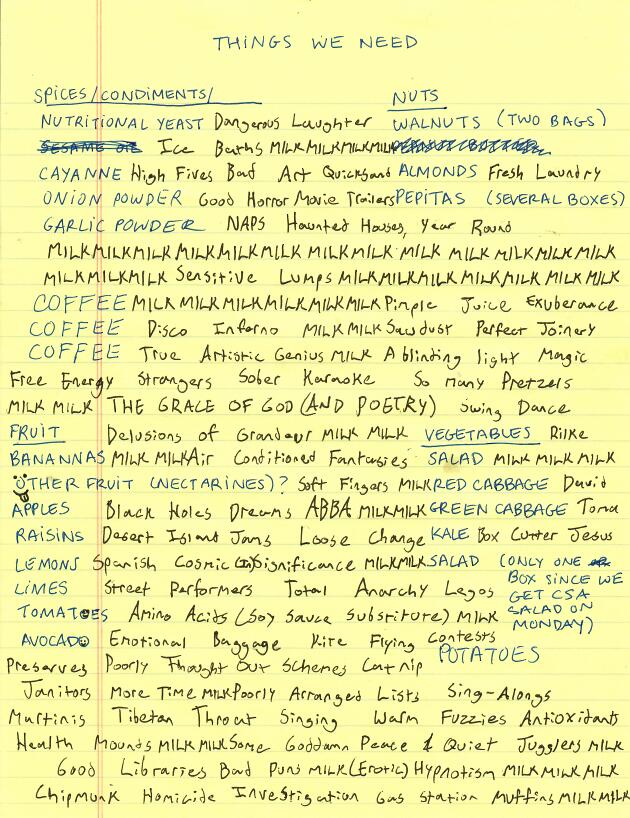 THINGS WE NEED
SPICES/CONDIMENTS/ NUTS
NUTRITIONAL YEAST Dangerous Laughter WALNUTS (TWO BAGS)
SESAME OIL Ice Baths MILK MILK MILK MILK
CAYANNE High Fives Bad Art Quicksand ALMONDS Fresh Laundry
ONION POWDER Good Horror Movie Trailers PEPITAS (SEVERAL BOXES)
GARLIC POWDER NAPS Haunted Houses, Year Round
MILK MILK MILK MILK MILK MILK MILK MILK MILK MILK MILK MILK
MILK MILK MILK Sensitive Lumps MILK MILK MILK MILK MILK MILK
COFFEE MILK MILK MILK MILK MILK MILK Pimple Juice Exuberance
COFFEE Disco Inferno MILK MILK Sawdust Perfect Joinery
COFFEE True Artistic Genius MILK A blinding light Magic
Free Energy Strangers Sober Karaoke So many Pretzels
MILK MILK THE GRACE OF GOD (AND POETRY) Swing Dance
FRUIT Delusions of Grandeur MILK MILK VEGETABLES Rilke
BANANNAS MILK MILK Air Conditioned Fantasies SALAD MILK MILK MILK
OTHER FRUIT (NECTARINES)? Soft Fingers MILK RED CABBAGE David
APPLES Black Holes Dreams ABBA MILK MILK GREEN CABBAGE Toma
RAISINS Desert Island Jams Loose Change KALE Box Cutter Jesus
LEMONS Spanish Cosmic (In)Significance MILK MILK SALAD (ONLY ONE
LIMES Street Performers Total Anarchy Legos BOX SINCE WE GET CSA
TOMATOES Amino Acids (Soy Sauce Substitute) MILK SALAD ON MONDAY)
AVOCADO Emotional Baggage Kite Flying Contests
POTATOES
Preserves Poorly Thought Out Schemes Catnip
Janitors More Time MILK Poorly Arranged Lists Sing-Alongs
Martinis Tibetan Throat Singing Warm Fuzzies Antioxidants
Health Mounds MILK MILK Some Goddamn Peace & Quiet Jugglers MILK
Good Libraries Bad Puns MILK (Erotic) Hypnotism MILK MILK MILK
Chipmunk Homicide Investigation Gas Station Muffins MILK MILK